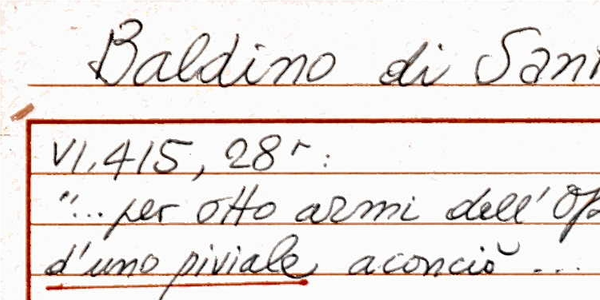 Baldino di San
VI.415, 28r:
"... per otto armi dell'Op
d'uno piviale aconciò ...